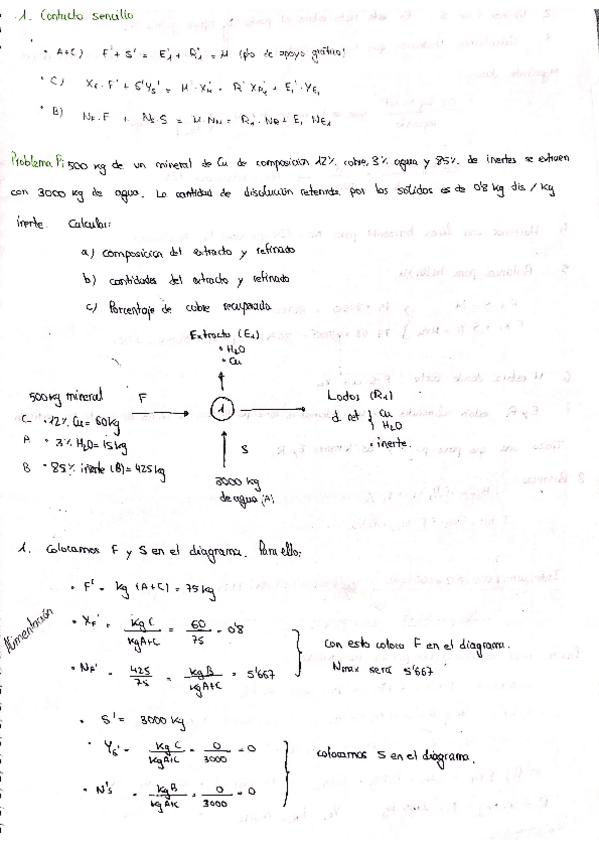 1. Contacto sencillo
• A+C) F' + S' = E'1 + R'1 = M (pto de apoyo gráfico)
• C) XF · F' + S'YS' = M' · X'M = R' XR1 + E1' · YE1
• B) NF · F + NS · S = M · NM = R1 · NR + E1 NE1
Problema P: 500 kg de un mineral de Cu de composición 12% cobre, 3% agua y 85% de inertes se extraen
con 3000 kg de agua. La cantidad de disolución retenida por los sólidos es de 0'8 kg dis / kg
inerte. Calcular:
a) composición del extracto y refinado
b) cantidades del extracto y refinado
c) Porcentaje de cobre recuperado
Extracto (E1)
• H2O
• Cu
500 kg mineral
C • 12% Cu = 60 kg
A • 3% H2O = 15 kg
B • 85% inerte (B) = 425 kg
F
1
Lodos (R1)
d ret { Cu H2O
• inerte.
S
3000 kg
de agua (A)
1. Colocamos F y S en el diagrama. Para ello:
Alimentación
• F' = kg (A+C) = 75 kg
• XF' = kg C / kg A+C = 60 / 75 = 0'8
• NF' = 425 / 75 = kg B / kg A+C = 5'667
Con esto coloco F en el diagrama.
Nmax será 5'667
• S' = 3000 kg
• YS' = kg C / kg A+C = 0 / 3000 = 0
• N'S = kg B / kg A+C = 0 / 3000 = 0
colocamos S en el diagrama.